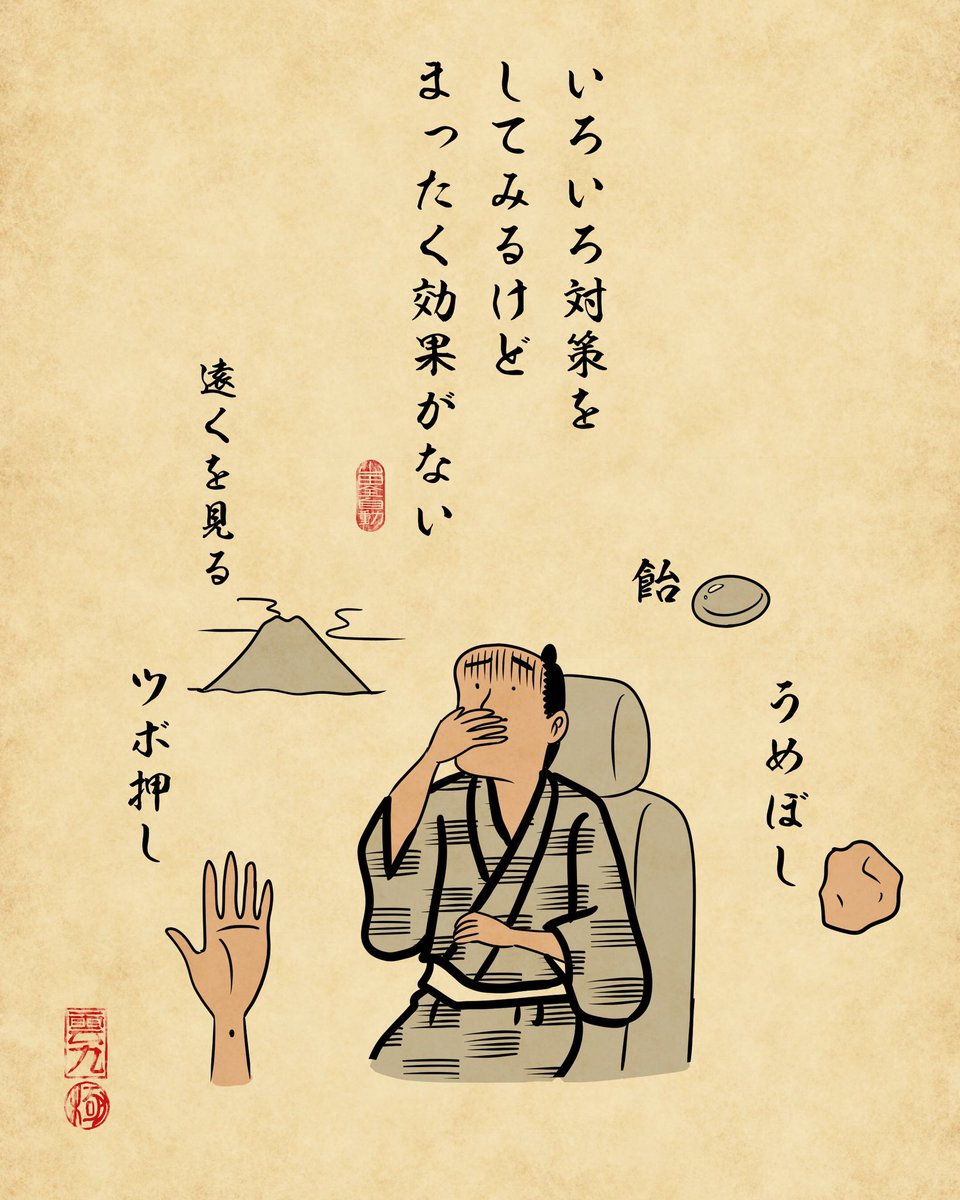 いろいろ対策を
してみるけど
まったく効果がない
飴
うめぼし
遠くを見る
ツボ押し